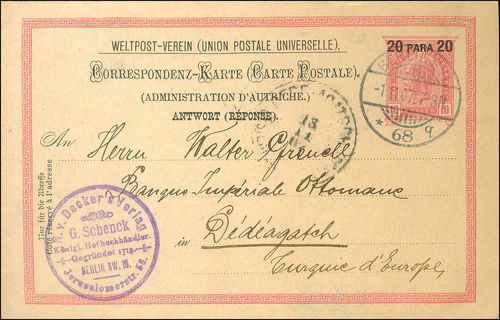 WELTPOST-VEREIN (UNION POSTALE UNIVERSELLE).
20 PARA 20
CORRESPONDENZ-KARTE (CARTE POSTALE).
(ADMINISTRATION D'AUTRICHE.)
ANTWORT (RÉPONSE).
10
* 68 q
An Herrn Walter
Banque Impériale Ottomane
in Dédéagatch
Turquie d'Europe
Nur für die Adresse
Côté réservé à l'adresse
R. v. Decker's Verlag
G. Schenck
Königl. Hofbuchhändler.
Gegründet 1713
BERLIN SW. 19.
Jerusalemerstr. 56.